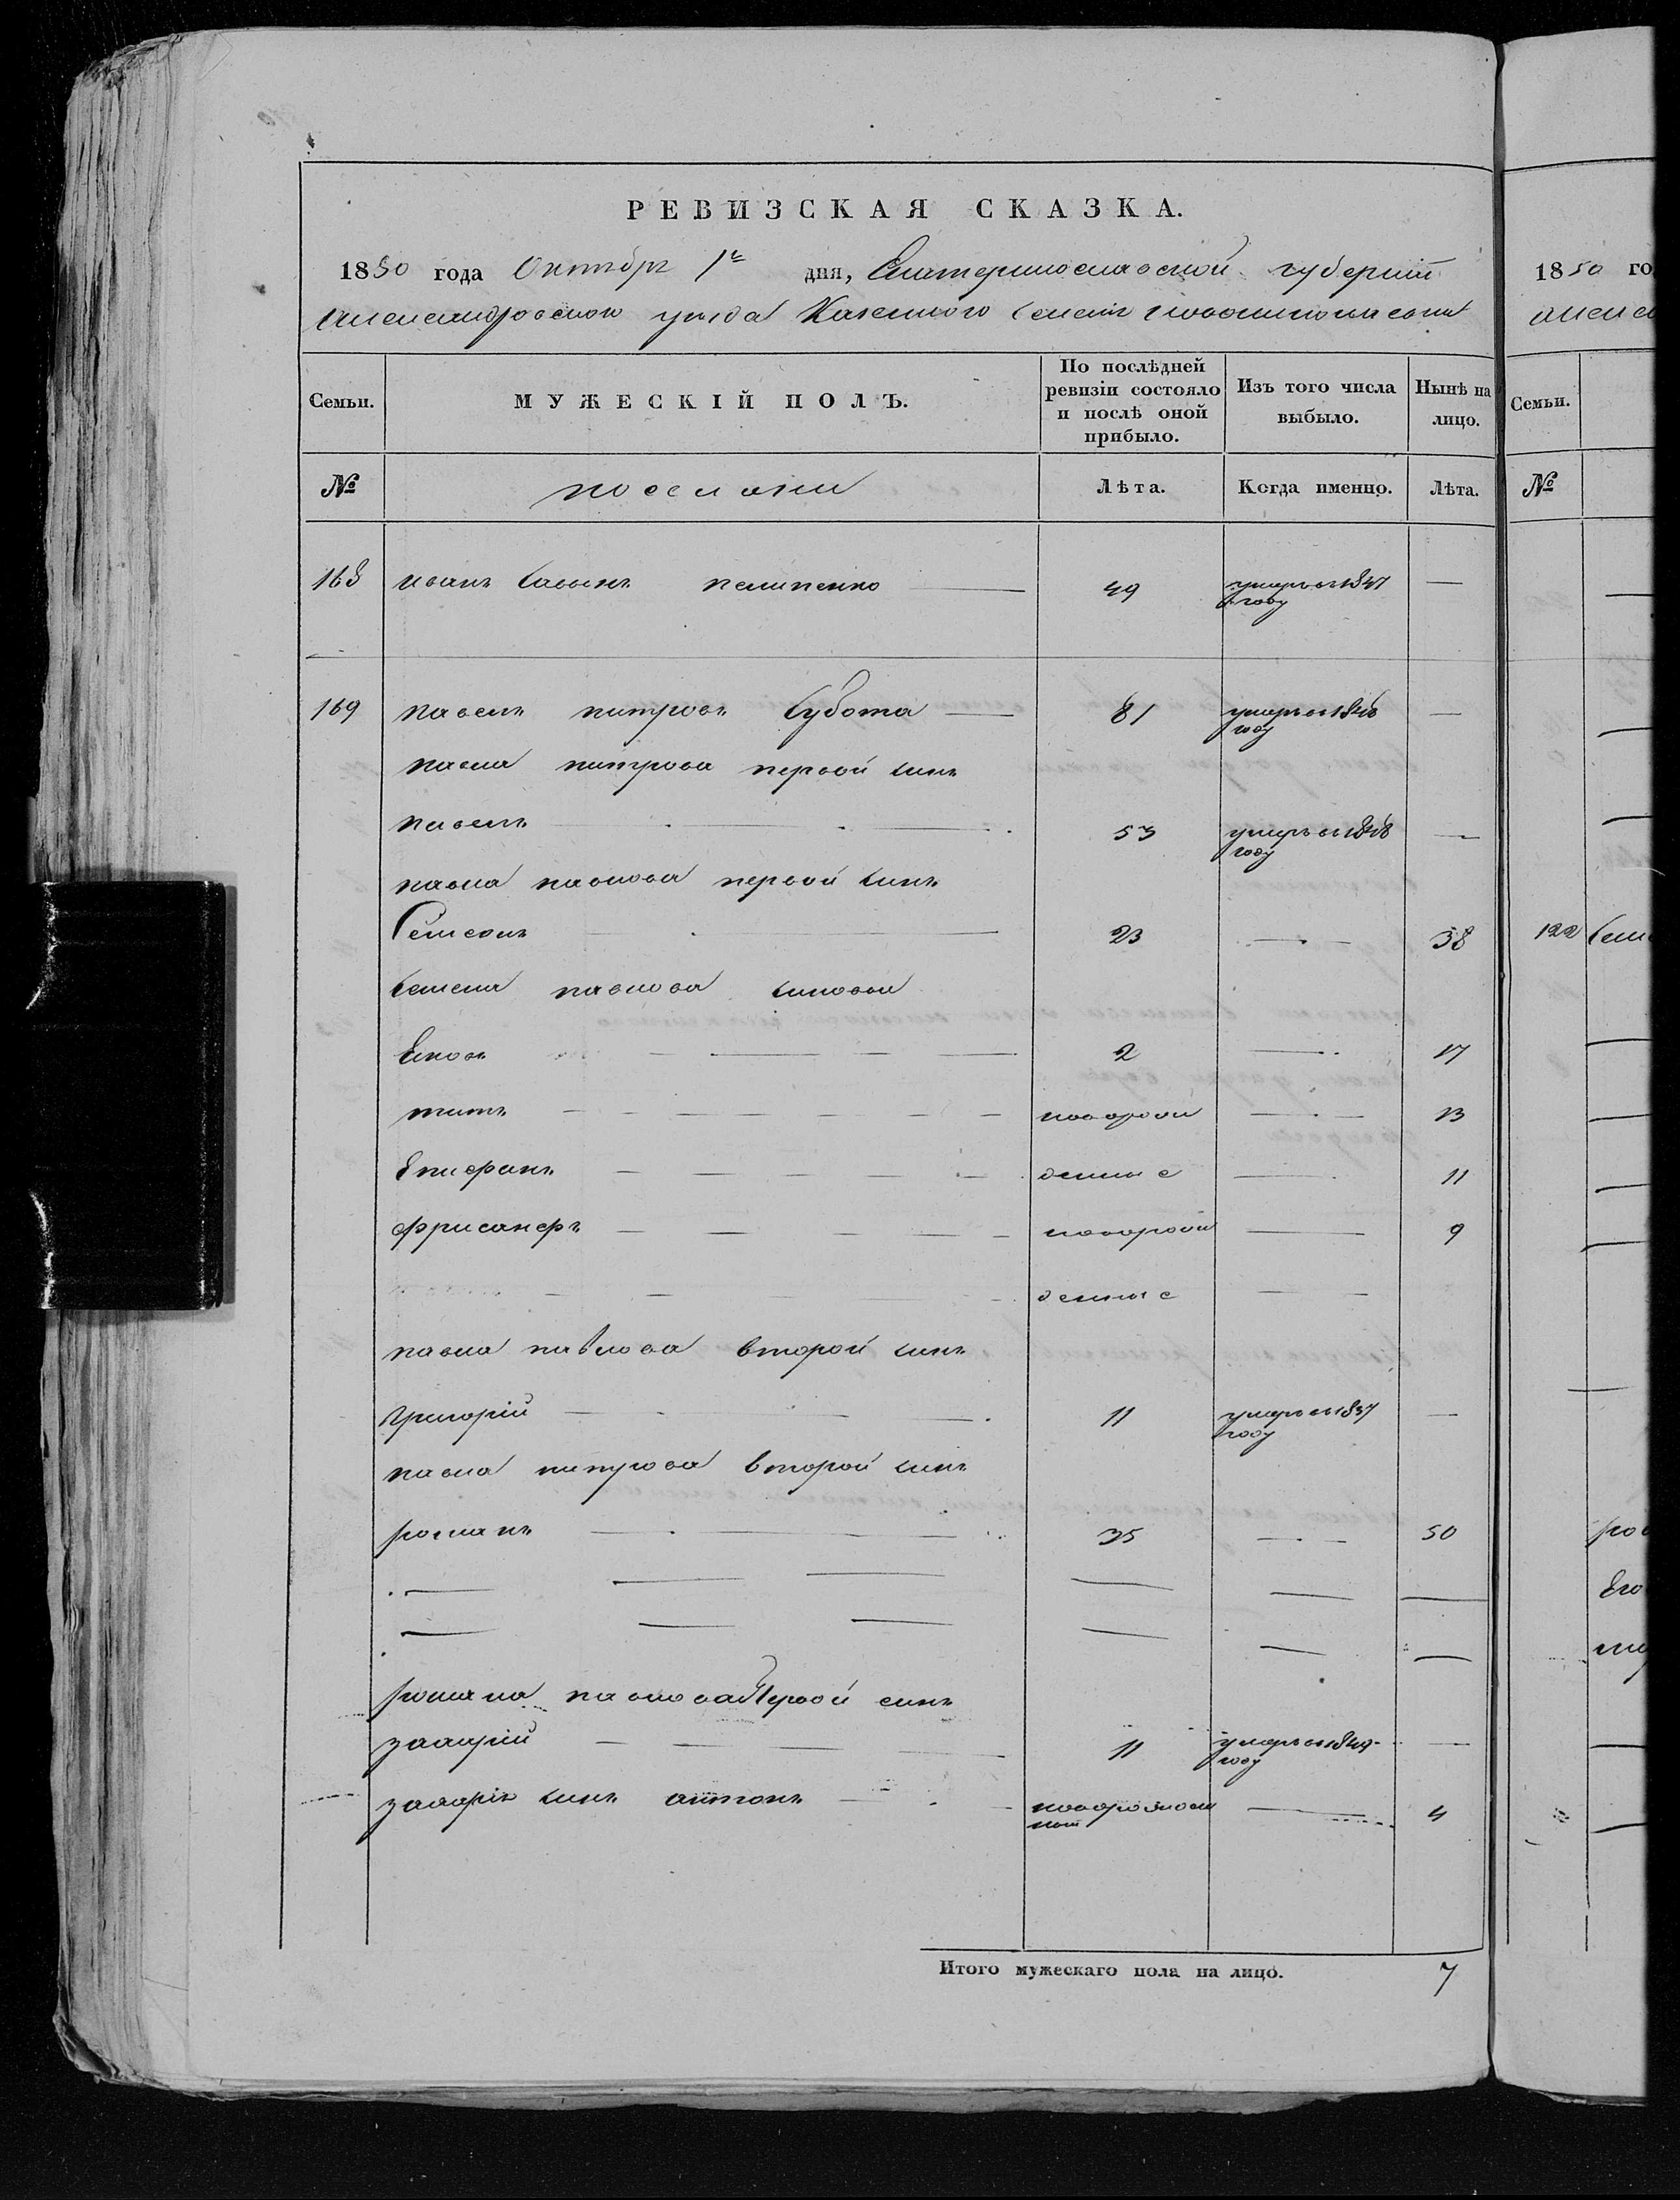 РЕВИЗСКАЯ СКАЗКА.
1850 года Октября 1го дня, Екатеринославской губернии
Александровского уезда Казенного селения
Семьи. МУЖЕСКІЙ ПОЛЪ. По послѣдней ревизіи состояло и послѣ оной прибыло. Изъ того числа выбыло. Нынѣ на лицо.
№ поселяни Лѣта. Когда именно. Лѣта.
168 иванъ савынъ пелипенко 49 умеръ въ 1847 году —
169 павелъ питровъ Субота 81 умеръ въ 1846 году —
павла питрова первой синъ
павелъ 53 умеръ въ 1848 году —
павла павлова первой синъ
Семенъ 23 — 38
семена павлова синовья
Яковъ 2 — 17
титъ новорож — 13
Епифанъ денные — 11
фрисанфъ новорож — 9
денные —
павла павлова второй синъ
григорій 11 умеръ въ 1837 году —
павла питрова второй синъ
романъ 35 — 50
романа павлова первой синъ
захарій 11 умеръ въ 1849 году —
захарія синъ антонъ новорожден ный — 4
Итого мужескаго пола на лицо. 7
1850 го
Семьи.
№
122 Сем
ро
Его